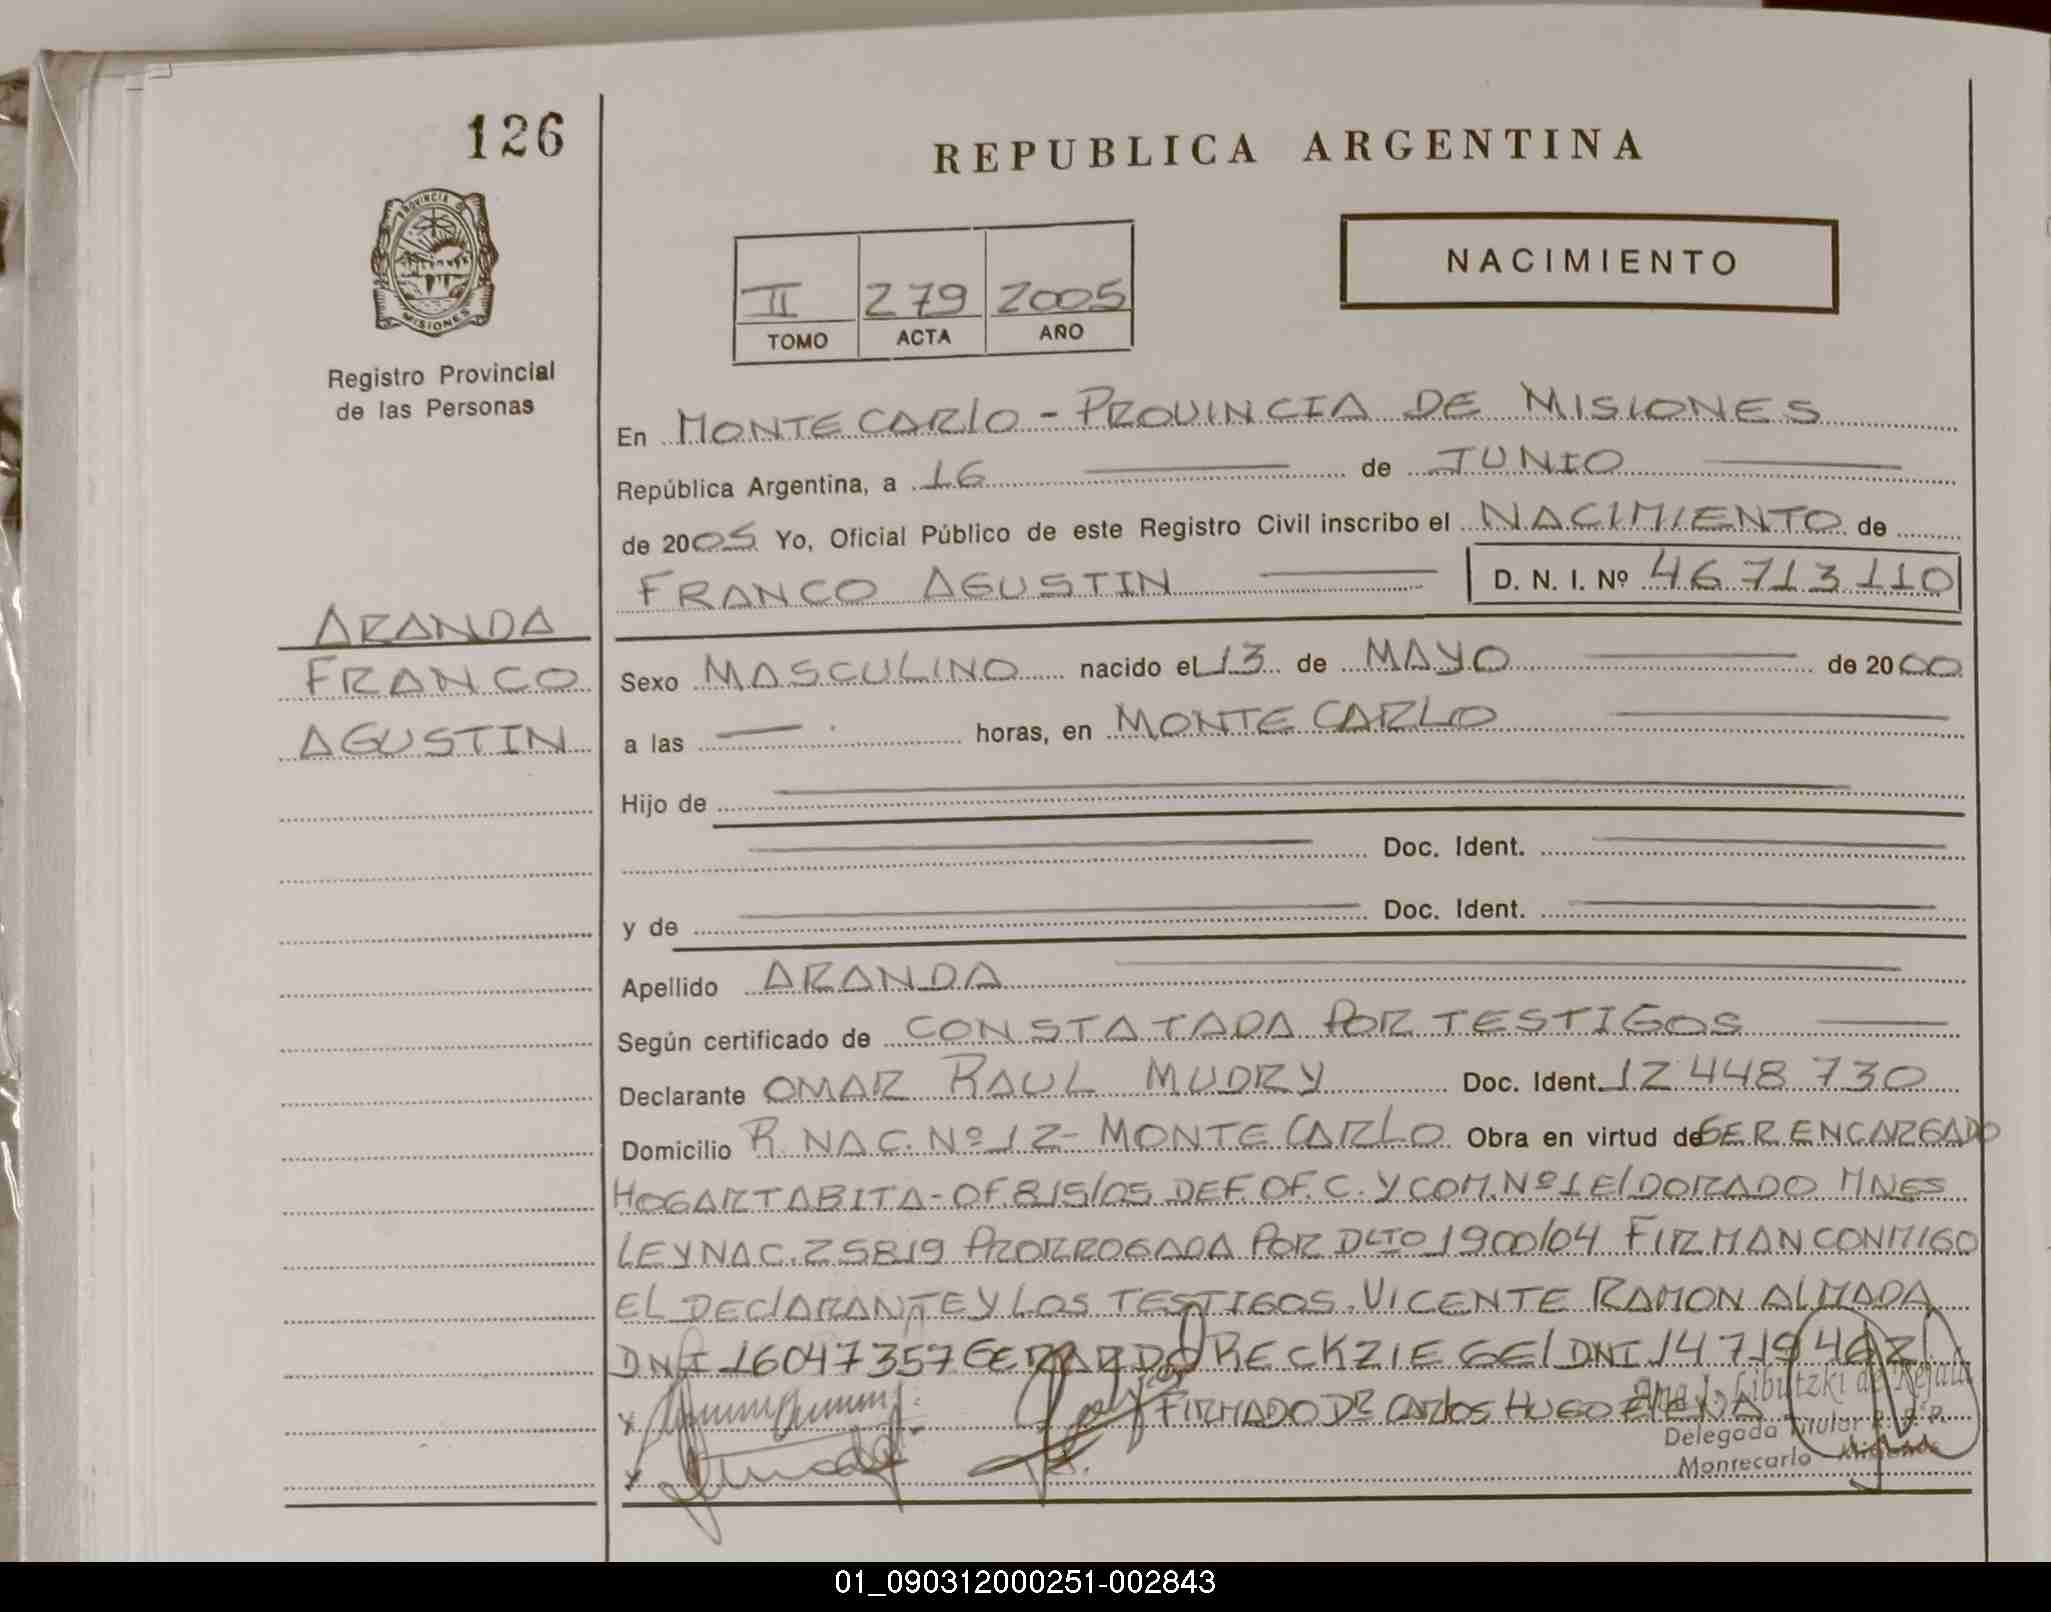 126
REPUBLICA ARGENTINA
PROVINCIA DE
MISIONES
NACIMIENTO
II 279 2005
TOMO ACTA AÑO
Registro Provincial
de las Personas
En MONTECARLO - PROVINCIA DE MISIONES
República Argentina, a 16 de JUNIO
de 2005 Yo, Oficial Público de este Registro Civil inscribo el NACIMIENTO de
FRANCO AGUSTIN D. N. I. Nº 46 713 110
ARANDA
FRANCO
AGUSTIN
Sexo MASCULINO nacido el 13 de MAYO de 2000
a las horas, en MONTECARLO
Hijo de
Doc. Ident.
y de Doc. Ident.
Apellido ARANDA
Según certificado de CONSTATADA POR TESTIGOS
Declarante OMAR RAUL MUDRY Doc. Ident. 12 448 730
Domicilio R. NAC. Nº 12 - MONTECARLO Obra en virtud de SER ENCARGADO
HOGAR TABITA - OF. 815/05 DEF. OF. C. Y COM. Nº 1 ELDORADO MNES
LEY NAC. 25819 PRORROGADA POR DCTO 1900/04 FIRMAN CONMIGO
EL DECLARANTE Y LOS TESTIGOS. VICENTE RAMON ALMADA
DNI 16047357 GERARDO RECKZIEGEL DNI 14719462
FIRMADO DR CARLOS HUGO
Ana Libutzki de
Delegada Titular R. P. P.
Montecarlo Misiones
01_090312000251-002843